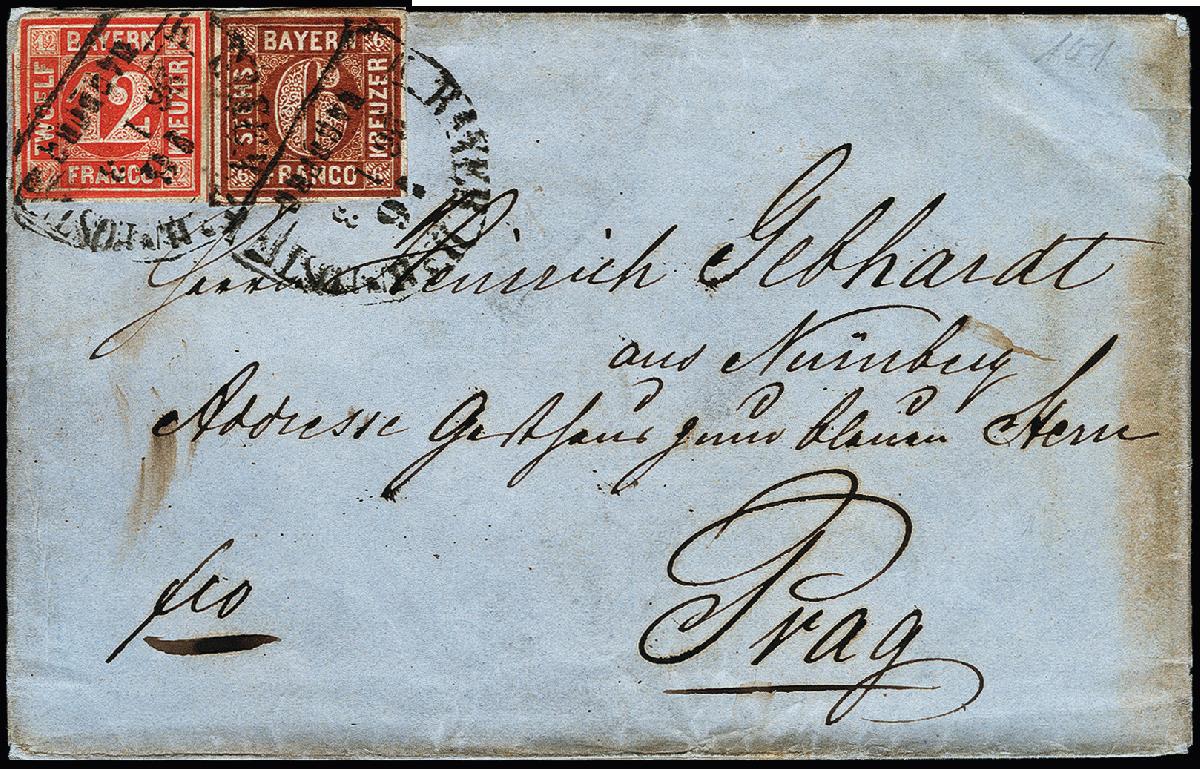 BAYERN
ZWOELF
12
KREUZER
FRANCO
BAYERN
SECHS
6
KREUZER
FRANCO
Herrn Heinrich Gebhardt
aus Nürnberg
Addresse Gasthaus zum blauen Stern
fco
Prag